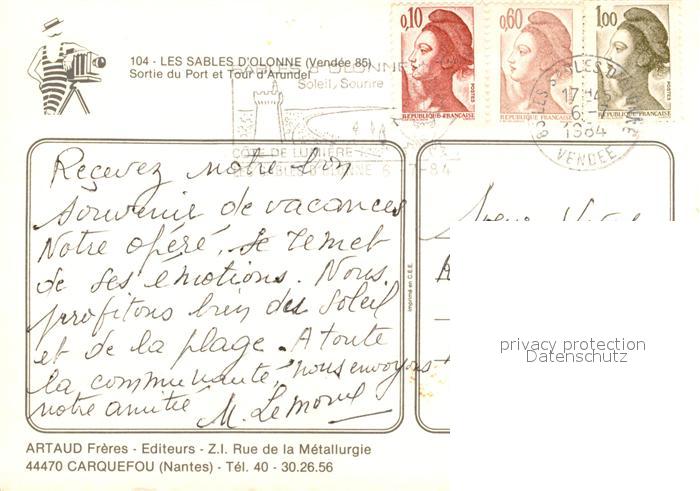 104 - LES SABLES D'OLONNE (Vendée 85)
Sortie du Port et Tour d'Arundel
0,10
0,60
1,00
POSTES
REPUBLIQUE FRANÇAISE
REPUBLIQUE FRANÇAISE
REPUBLIQUE FRANÇAISE
SABLES D'OLONNE
Soleil, Sourire
COTE DE LUMIERE
6-7-84
17 H
1984
VENDEE
Recevez notre bon
souvenir de vacances
Notre opéré, se remet
de ses émotions. Nous
profitons bien du soleil
et de la plage. A toute
la communauté, nous envoyons
notre amitié M.
Imprimé en C.E.E.
privacy protection
Datenschutz
ARTAUD Frères - Editeurs - Z.I. Rue de la Métallurgie
44470 CARQUEFOU (Nantes) - Tél. 40 - 30.26.56